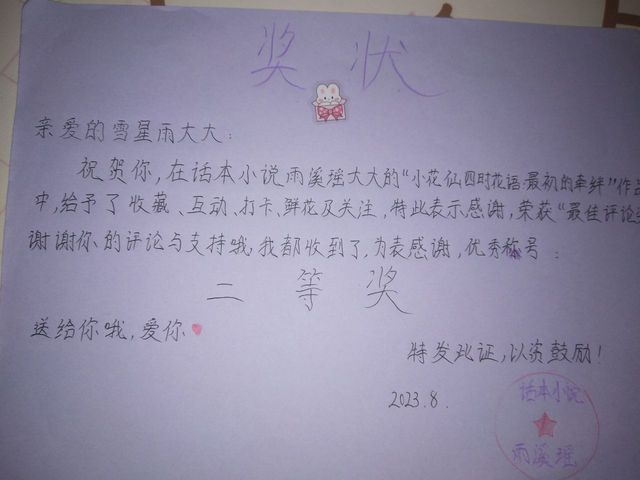 奖状
亲爱的雪星雨大大：
祝贺你，在话本小说雨溪瑶大大的“小花仙四时花语·最初的牵绊”作
中，给予了收藏、互动、打卡、鲜花及关注，特此表示感谢，荣获“最佳评论
谢谢你的评论与支持哦，我都收到了，为表感谢，优秀称号：
二等奖
送给你哦，爱你
特发此证，以资鼓励！
2023.8.
话本小说
雨溪瑶